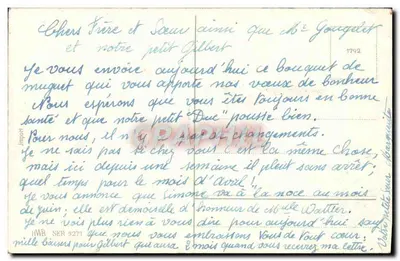 Chers Frère et Sœur ainsi que Me Gougelet
et notre petit Gilbert
1942
Je vous envoie aujourd'hui ce bouquet de
muguet qui vous apporte nos vœux de bonheur
Nous espérons que vous êtes toujours en bonne
santé et que notre petit "Duc" pousse bien.
Pour nous, il n'y a pas de changements.
Je ne sais pas si chez vous c'est la même chose,
mais ici depuis une semaine il pleut sans arrêt,
quel temps pour le mois d'Avril
Je vous annonce que Simone va à la noce au mois
de juin, elle est demoiselle d'honneur de Melle Wattler.
Je ne vois plus rien à vous dire pour aujourd'hui sauf
que nous vous embrassons tous de tout cœur.
mille baisers pour Gilbert qui aura 2 mois quand vous recevrez ma lettre.
Votre petite sœur
Import
HWB SER 9271